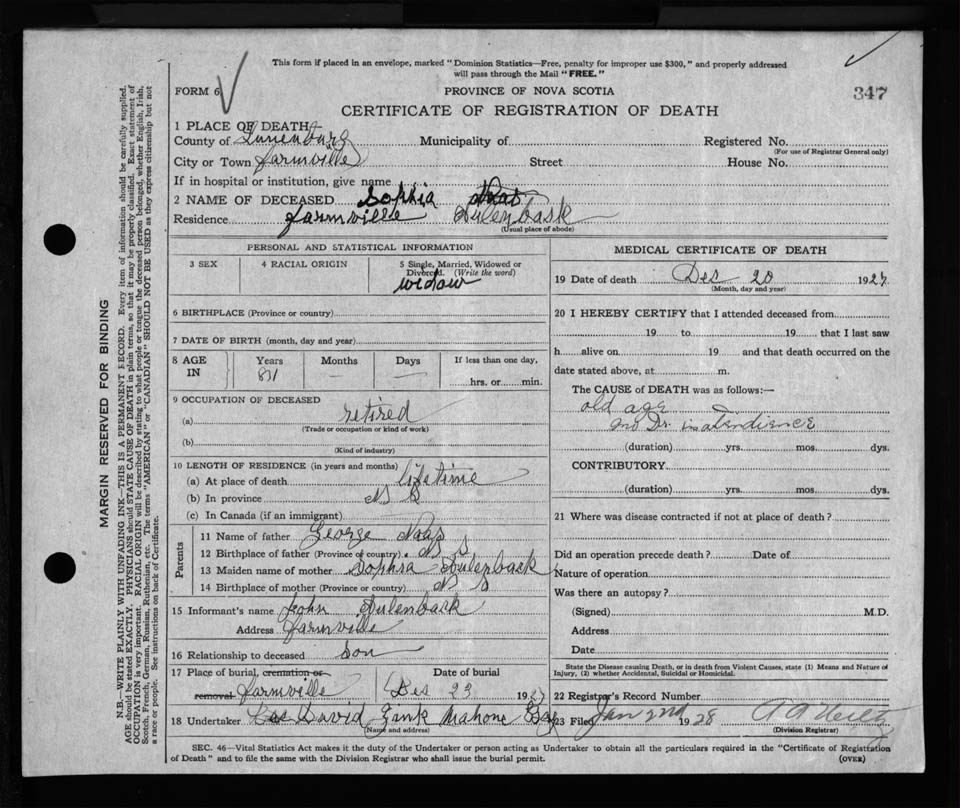 This form if placed in an envelope, marked "Dominion Statistics—Free, penalty for improper use $300," and properly addressed
will pass through the Mail "FREE."
FORM 6
PROVINCE OF NOVA SCOTIA
347
CERTIFICATE OF REGISTRATION OF DEATH
1 PLACE OF DEATH
County of Lunenburg Municipality of Registered No.
(For use of Registrar General only)
City or Town Farmville Street House No.
If in hospital or institution, give name
2 NAME OF DECEASED Sophia
Residence Farmville Aulenback
(Usual place of abode)
PERSONAL AND STATISTICAL INFORMATION
3 SEX 4 RACIAL ORIGIN 5 Single, Married, Widowed or
Divorced. (Write the word)
widow
6 BIRTHPLACE (Province or country)
7 DATE OF BIRTH (month, day and year)
8 AGE IN Years Months Days If less than one day,
hrs. or min.
9 OCCUPATION OF DECEASED
(a) retired
(Trade or occupation or kind of work)
(b)
(Kind of industry)
10 LENGTH OF RESIDENCE (in years and months)
(a) At place of death lifetime
(b) In province N S
(c) In Canada (if an immigrant)
Parents
11 Name of father George Naas
12 Birthplace of father (Province or country) N S
13 Maiden name of mother Sophia Aulenback
14 Birthplace of mother (Province or country) N S
15 Informant's name John Aulenback
Address Farmville
16 Relationship to deceased Son
17 Place of burial, cremation or Date of burial
removal Farmville Dec 23 1927
18 Undertaker David Zink Mahone Bay
(Name and address)
MEDICAL CERTIFICATE OF DEATH
19 Date of death Dec 20 1927
(Month, day and year)
20 I HEREBY CERTIFY that I attended deceased from
19 to 19 that I last saw
h alive on 19 and that death occurred on the
date stated above, at m.
The CAUSE of DEATH was as follows:—
old age
no Dr. in atendience
(duration) yrs. mos. dys.
CONTRIBUTORY
(duration) yrs. mos. dys.
21 Where was disease contracted if not at place of death?
Did an operation precede death? Date of
Nature of operation
Was there an autopsy?
(Signed) M.D.
Address
Date
State the Disease causing Death, or in death from Violent Causes, state (1) Means and Nature of
Injury, (2) whether Accidental, Suicidal or Homicidal.
22 Registrar's Record Number
23 Filed Jan 2nd 1928
(Division Registrar)
SEC. 46—Vital Statistics Act makes it the duty of the Undertaker or person acting as Undertaker to obtain all the particulars required in the "Certificate of Registration
of Death" and to file the same with the Division Registrar who shall issue the burial permit.
(OVER)
MARGIN RESERVED FOR BINDING
N.B.—WRITE PLAINLY WITH UNFADING INK—THIS IS A PERMANENT RECORD. Every item of information should be carefully supplied.
AGE should be stated EXACTLY. PHYSICIANS should STATE CAUSE OF DEATH in plain terms, so that it may be properly classified. Exact statement of
OCCUPATION is very important. RACIAL ORIGIN will be described by stating to what people or tongue the deceased person belonged, whether English, Irish,
Scotch, French, German, Russian, Ruthenian, etc. The terms "AMERICAN" or "CANADIAN" SHOULD NOT BE USED as they express citizenship but not
a race or people. See instructions on back of Certificate.